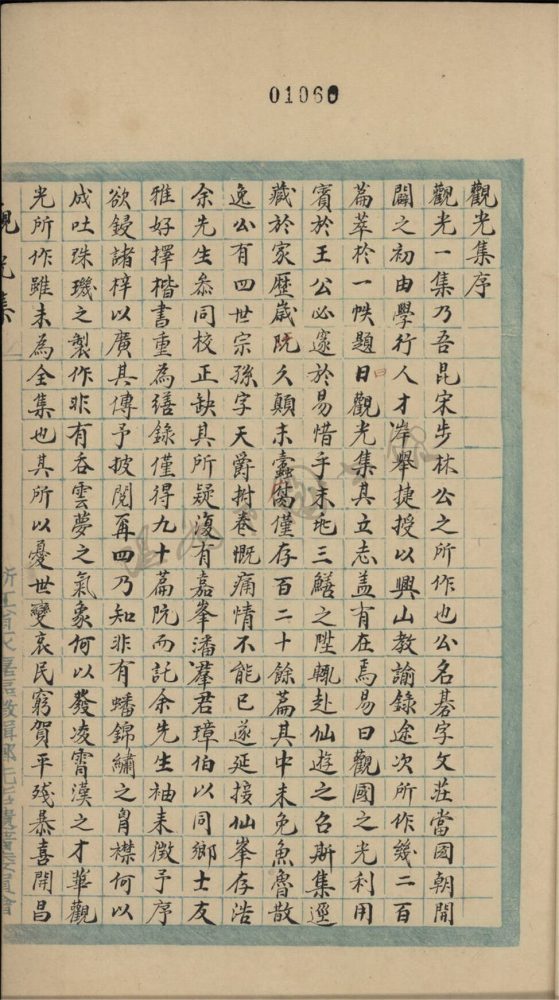 01060
觀光集序
觀光一集乃吾昆宋步林公之所作也公名碁字文莊當國朝開
闢之初由學行人才岸舉捷授以興山教諭錄途次所作幾二百
篇萃於一帙題曰觀光集其立志盖有在焉易曰觀國之光利用
賓於王公必邃於易惜乎未毛三鱔之陞輒赴仙遊之召斯集逕
藏於家歷歲旣久顛末蠹傷僅存百二十餘篇其中未免魚魯散
逸公有四世宗孫字天爵拊卷慨痛情不能已遂延接仙峯存浩
余先生叅同校正缺其所疑復有嘉峯潘羣君璋伯以同鄉士友
雅好擇楷書重為繕錄僅得九十篇旣而託余先生袖未徵予序
欲鋟諸梓以廣其傳予披閱再四乃知非有蟠錦繡之胷襟何以
成吐珠璣之製作非有吞雲夢之氣象何以發凌霄漢之才華觀
光所作雖未為全集也其所以憂世變哀民窮賀平殘暴喜開昌
觀光集